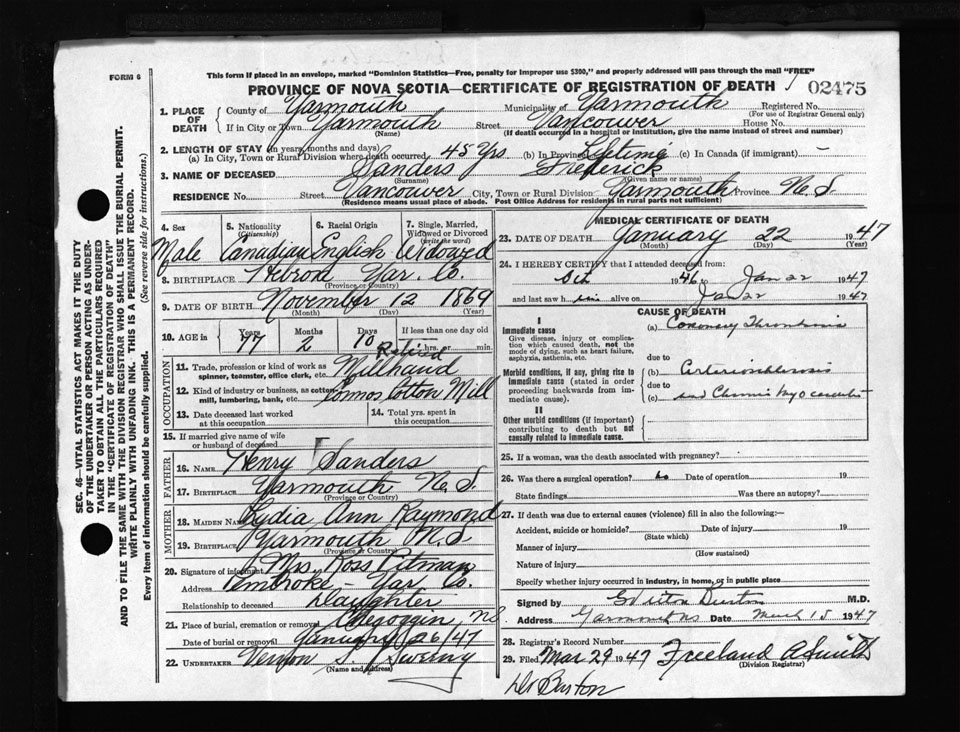 FORM 6
This form if placed in an envelope, marked "Dominion Statistics—Free, penalty for improper use $300," and properly addressed will pass through the mail "FREE"
PROVINCE OF NOVA SCOTIA—CERTIFICATE OF REGISTRATION OF DEATH
02475
1. PLACE OF DEATH
County of Yarmouth Municipality of Yarmouth Registered No.
(For use of Registrar General only)
If in City or Town Yarmouth Street Vancouver House No.
(Name) (If death occurred in a hospital or institution, give the name instead of street and number)
2. LENGTH OF STAY (in years, months and days)
(a) In City, Town or Rural Division where death occurred 45 Yrs (b) In Province Lifetime (c) In Canada (if immigrant) —
3. NAME OF DECEASED Sanders Frederick
(Surname) (Given name or names)
RESIDENCE No. Street Vancouver City, Town or Rural Division Yarmouth Province N. S.
(Residence means usual place of abode. Post Office Address for residents in rural parts not sufficient)
4. Sex Male
5. Nationality (Citizenship) Canadian
6. Racial Origin English
7. Single, Married, Widowed or Divorced (write the word)
8. BIRTHPLACE Hebron Yar. Co.
(Province or Country)
9. DATE OF BIRTH November 12 1869
(Month) (Day) (Year)
10. AGE in Years 77 Months 2 Days 10 If less than one day
hrs. or min.
OCCUPATION
11. Trade, profession or kind of work as spinner, teamster, office clerk, etc. Retired Millhand
12. Kind of industry or business, as cotton mill, lumbering, bank, etc. Cosmos Cotton Mill
13. Date deceased last worked at this occupation
14. Total yrs. spent in this occupation
15. If married give name of wife or husband of deceased
FATHER
16. NAME Henry Sanders
17. BIRTHPLACE Yarmouth N. S.
(Province or Country)
MOTHER
18. MAIDEN NAME Lydia Ann Raymond
19. BIRTHPLACE Yarmouth N. S
(Province or Country)
20. Signature of informant Mrs. Ross Pitman
Address Pembroke - Yar Co.
Relationship to deceased Daughter
21. Place of burial, cremation or removal NS
Date of burial or removal January 26/47
22. UNDERTAKER Vernon S. Sweeny
(Name and Address)
MEDICAL CERTIFICATE OF DEATH
23. DATE OF DEATH January 22 1947
(Month) (Day) (Year)
24. I HEREBY CERTIFY that I attended deceased from:
1946 to Jan 22 1947
and last saw him alive on Jan 22 1947
CAUSE OF DEATH
I
Immediate cause
Give disease, injury or complication which caused death, not the mode of dying, such as heart failure, asphyxia, asthenia, etc.
(a) Coronary Thrombosis
due to
Morbid conditions, if any, giving rise to immediate cause (stated in order proceeding backwards from immediate cause).
(b) Arteriosclerosis
due to
(c) and Chronic Myocarditis
II
Other morbid conditions (if important) contributing to death but not causally related to immediate cause.
25. If a woman, was the death associated with pregnancy?
26. Was there a surgical operation? Date of operation 19
State findings Was there an autopsy?
27. If death was due to external causes (violence) fill in also the following:—
Accident, suicide or homicide? Date of injury 19
(State which)
Manner of injury
(How sustained)
Nature of injury
Specify whether injury occurred in industry, in home, or in public place
Signed by M.D.
Address Yarmouth NS Date March 15 1947
28. Registrar's Record Number
29. Filed Mar 29 1947 Freeland A Smith
(Division Registrar)
Dr Burton
SEC. 46—VITAL STATISTICS ACT MAKES IT THE DUTY
OF THE UNDERTAKER OR PERSON ACTING AS UNDERTAKER
TO OBTAIN ALL THE PARTICULARS REQUIRED
IN THE "CERTIFICATE OF REGISTRATION OF DEATH"
AND TO FILE THE SAME WITH THE DIVISION REGISTRAR WHO SHALL ISSUE THE BURIAL PERMIT.
WRITE PLAINLY WITH UNFADING INK. THIS IS A PERMANENT RECORD.
Every item of information should be carefully supplied. (See reverse side for instructions.)